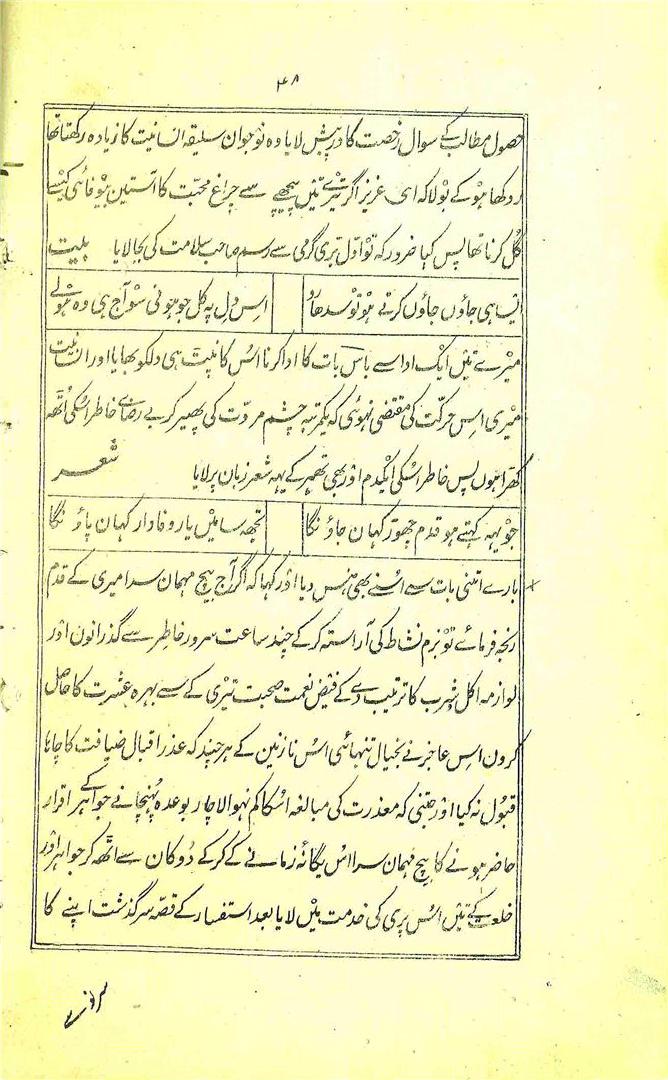 ۴۸
حصول مطالب کے سوال رخصت کا درپیش لایا وہ نوجوان سلیقہ انسانیت کا زیادہ رکھتا تھا
روکھا ہو کے بولا کہ ای عزیز اگر تیرے تئیں پیچھے سے چراغ محبت کا آستین بیوفائی کیسے
گل کرنا تھا پس کیا ضرور کہ تو اول تیری گرمی سے رسم صاحب سلامت کی بجا لایا بیت
ایسا ہی جاؤں جاؤں کرتے ہو تو سدھارو اس دل پہ کل جو ہونی سو آج ہی وہ ہولے
میرے تئیں ایک ادا سے پاس بات کا ادا کرنا اس کا نپٹ ہی دلکو بھایا اور انسانیت
میری اس حرکت کی مقتضی نہوئی کہ یکمرتبہ چشم مروت کی پھیر کر بے رضائے خاطر اسکی اٹھ
کھڑا ہوں پس خاطر اسکی ایکدم اور بھی ٹھہر کے یہہ شعر زبان پر لایا شعر
جو یہہ کہتے ہو قدم چھوڑ کہان جاؤنگا تجھ سا میں یار وفادار کہان پاؤنگا
بارے اتنی بات سے اسنے بھی ہنس دیا اور کہا کہ اگر آج بیچ مہمان سرا میری کے قدم
رنجہ فرمائے تو بزم نشاط کی آراستہ کر کے چند ساعت سرور خاطر سے گذرانون اور
لوازمہ اکل و شرب کا ترتیب دے کے فیض نعمت صحبت تیری کے سے بہرہ عشرت کا حاصل
کرون اس عاجز نے بخیال تنہائی اس نازنین کے ہر چند کہ عذر اقبال ضیافت کا چاہا
قبول نہ کیا اور جتنی کہ معذرت کی مبالغہ اسکا کم نہوا لاچار بوعدہ پہنچانے جواہر کے اقرار
حاضر ہونے کا بیچ مہمان سرا اس یگانہ زمانے کے کر کے دوکان سے اٹھ کر جواہر اور
خلعت کے تئیں اس پری کی خدمت میں لایا بعد استفسار کے قصہ سرگذشت اپنے کا